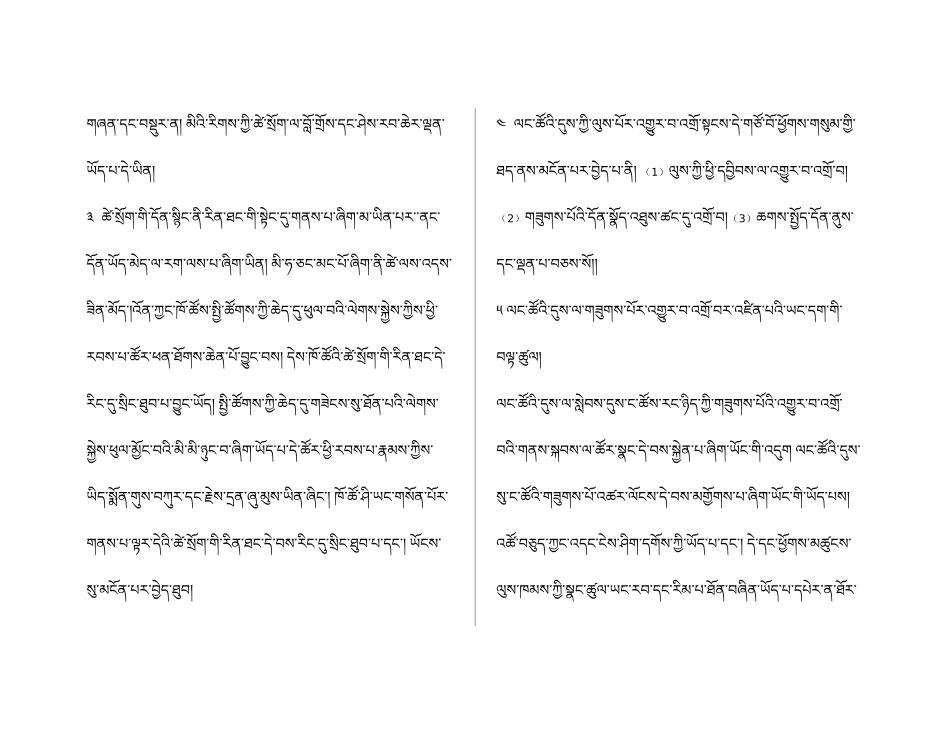 གཞན་དང་བསྡུར་ན། མིའི་རིགས་ཀྱི་ཚེ་སྲོག་ལ་བློ་གྲོས་དང་ཤེས་རབ་ཆེར་ལྡན་
ཡོད་པ་དེ་ཡིན།
༣ ཚེ་སྲོག་གི་དོན་སྙིང་ནི་རིན་ཐང་གི་སྟེང་དུ་གནས་པ་ཞིག་མ་ཡིན་པར་་ནང་
དོན་ཡོད་མེད་ལ་རག་ལས་པ་ཞིག་ཡིན། མི་ཧ་ཅང་མང་པོ་ཞིག་ནི་ཚེ་ལས་འདས་
ཟིན་མོད་།འོན་ཀྱང་ཁོ་ཚོས་སྤྱི་ཚོགས་ཀྱི་ཆེད་དུ་ཕུལ་བའི་ལེགས་སྐྱེས་ཀྱིས་ཕྱི་
རབས་པ་ཚོར་ཕན་ཐོགས་ཆེན་པོ་བྱུང་བས། དེས་ཁོ་ཚོའི་ཚེ་སྲོག་གི་རིན་ཐང་དེ་
རིང་དུ་སྲིང་ཐུབ་པ་བྱུང་ཡོད། སྤྱི་ཚོགས་ཀྱི་ཆེད་དུ་གཟེངས་སུ་ཐོན་པའི་ལེགས་
སྐྱེས་ཕུལ་མྱོང་བའི་མི་མི་ཉུང་བ་ཞིག་ཡོད་པ་དེ་ཚོར་ཕྱི་རབས་པ་རྣམས་ཀྱིས་
ཡིད་སྨོན་གུས་བཀུར་དང་རྗེས་དྲན་ཞུ་མུས་ཡིན་ཞིང་། ཁོ་ཚོ་ཤི་ཡང་གསོན་པོར་
གནས་པ་ལྟར་དེའི་ཚེ་སྲོག་གི་རིན་ཐང་དེ་བས་རིང་དུ་སྲིང་ཐུབ་པ་དང་། ཡོངས་
སུ་མངོན་པར་བྱེད་ཐུབ།
༤ ལང་ཚོའི་དུས་ཀྱི་ལུས་པོར་འགྱུར་བ་འགྲོ་སྟངས་དེ་གཙོ་བོ་ཕྱོགས་གསུམ་གྱི་
ཐད་ནས་མངོན་པར་བྱེད་པ་ནི། (1) ལུས་ཀྱི་ཕྱི་དབྱིབས་ལ་འགྱུར་བ་འགྲོ་བ།
(2) གཟུགས་པོའི་དོན་སྣོད་འཐུས་ཚང་དུ་འགྲོ་བ། (3) ཆགས་སྤྱོད་དོན་ནུས་
དང་ལྡན་པ་བཅས་སོ།།
༥ ལང་ཚོའི་དུས་ལ་གཟུགས་པོར་འགྱུར་བ་འགྲོ་བར་འཛིན་པའི་ཡང་དག་གི་
བལྟ་ཚུལ།
ལང་ཚོའི་དུས་ལ་སླེབས་དུས་ང་ཚོས་རང་ཉིད་ཀྱི་གཟུགས་པོའི་འགྱུར་བ་འགྲོ་
བའི་གནས་སྐབས་ལ་ཚོར་སྣང་དེ་བས་སྐྱེན་པ་ཞིག་ཡོང་གི་འདུག ལང་ཚོའི་དུས་
སུ་ང་ཚོའི་གཟུགས་པོ་འཚར་ལོངས་དེ་བས་མགྱོགས་པ་ཞིག་ཡོང་གི་ཡོད་པས།
འཚོ་བཅུད་ཀྱང་འདང་ངེས་ཤིག་དགོས་ཀྱི་ཡོད་པ་དང་། དེ་དང་ཕྱོགས་མཚུངས་
ལུས་ཁམས་ཀྱི་སྣང་ཚུལ་ཡང་རབ་དང་རིམ་པ་ཐོན་བཞིན་ཡོད་པ་དཔེར་ན་ཐོར་